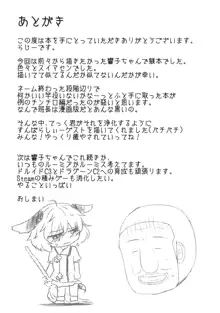 あとがき
この度は本を手にとっていただきありがとうございます。
らじーです。
今回は前々から描きたかった響子ちゃんで額本でした。
色々とスイマセンでした。
描いてて似てるんだか似てないんだかが辛い。
ネーム終わった段階辺りで
何かいい竿役いないかなーっとふと手に取った本が
例のチンチロ編だったのが
なんで班長は漫画版だとあんな黒いの。
そんな中、てっく君がそれを浄化するように
すんばらしぃーゲストを描いてくれました(パチパチ)
みんな!ゆっくり癒やされていってね!
次は響子ちゃんでこれ続きか、
いつものルーミアかルーミス考えてます。
ドルイドC3とドラグーンC2への育成も頑張ります。
Steamの積みゲーも消化したい。
やることいっぱい
おしまい